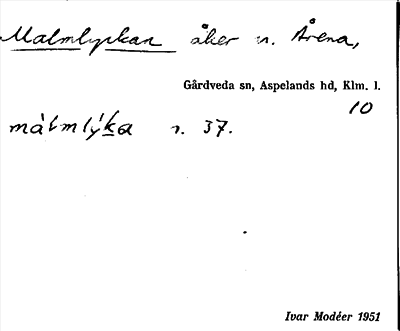 Malmlyckan åker n. Årena,
Gårdveda sn, Aspelands hd, Klm. l.
10
málmlýka n. 37.
Ivar Modéer 1951